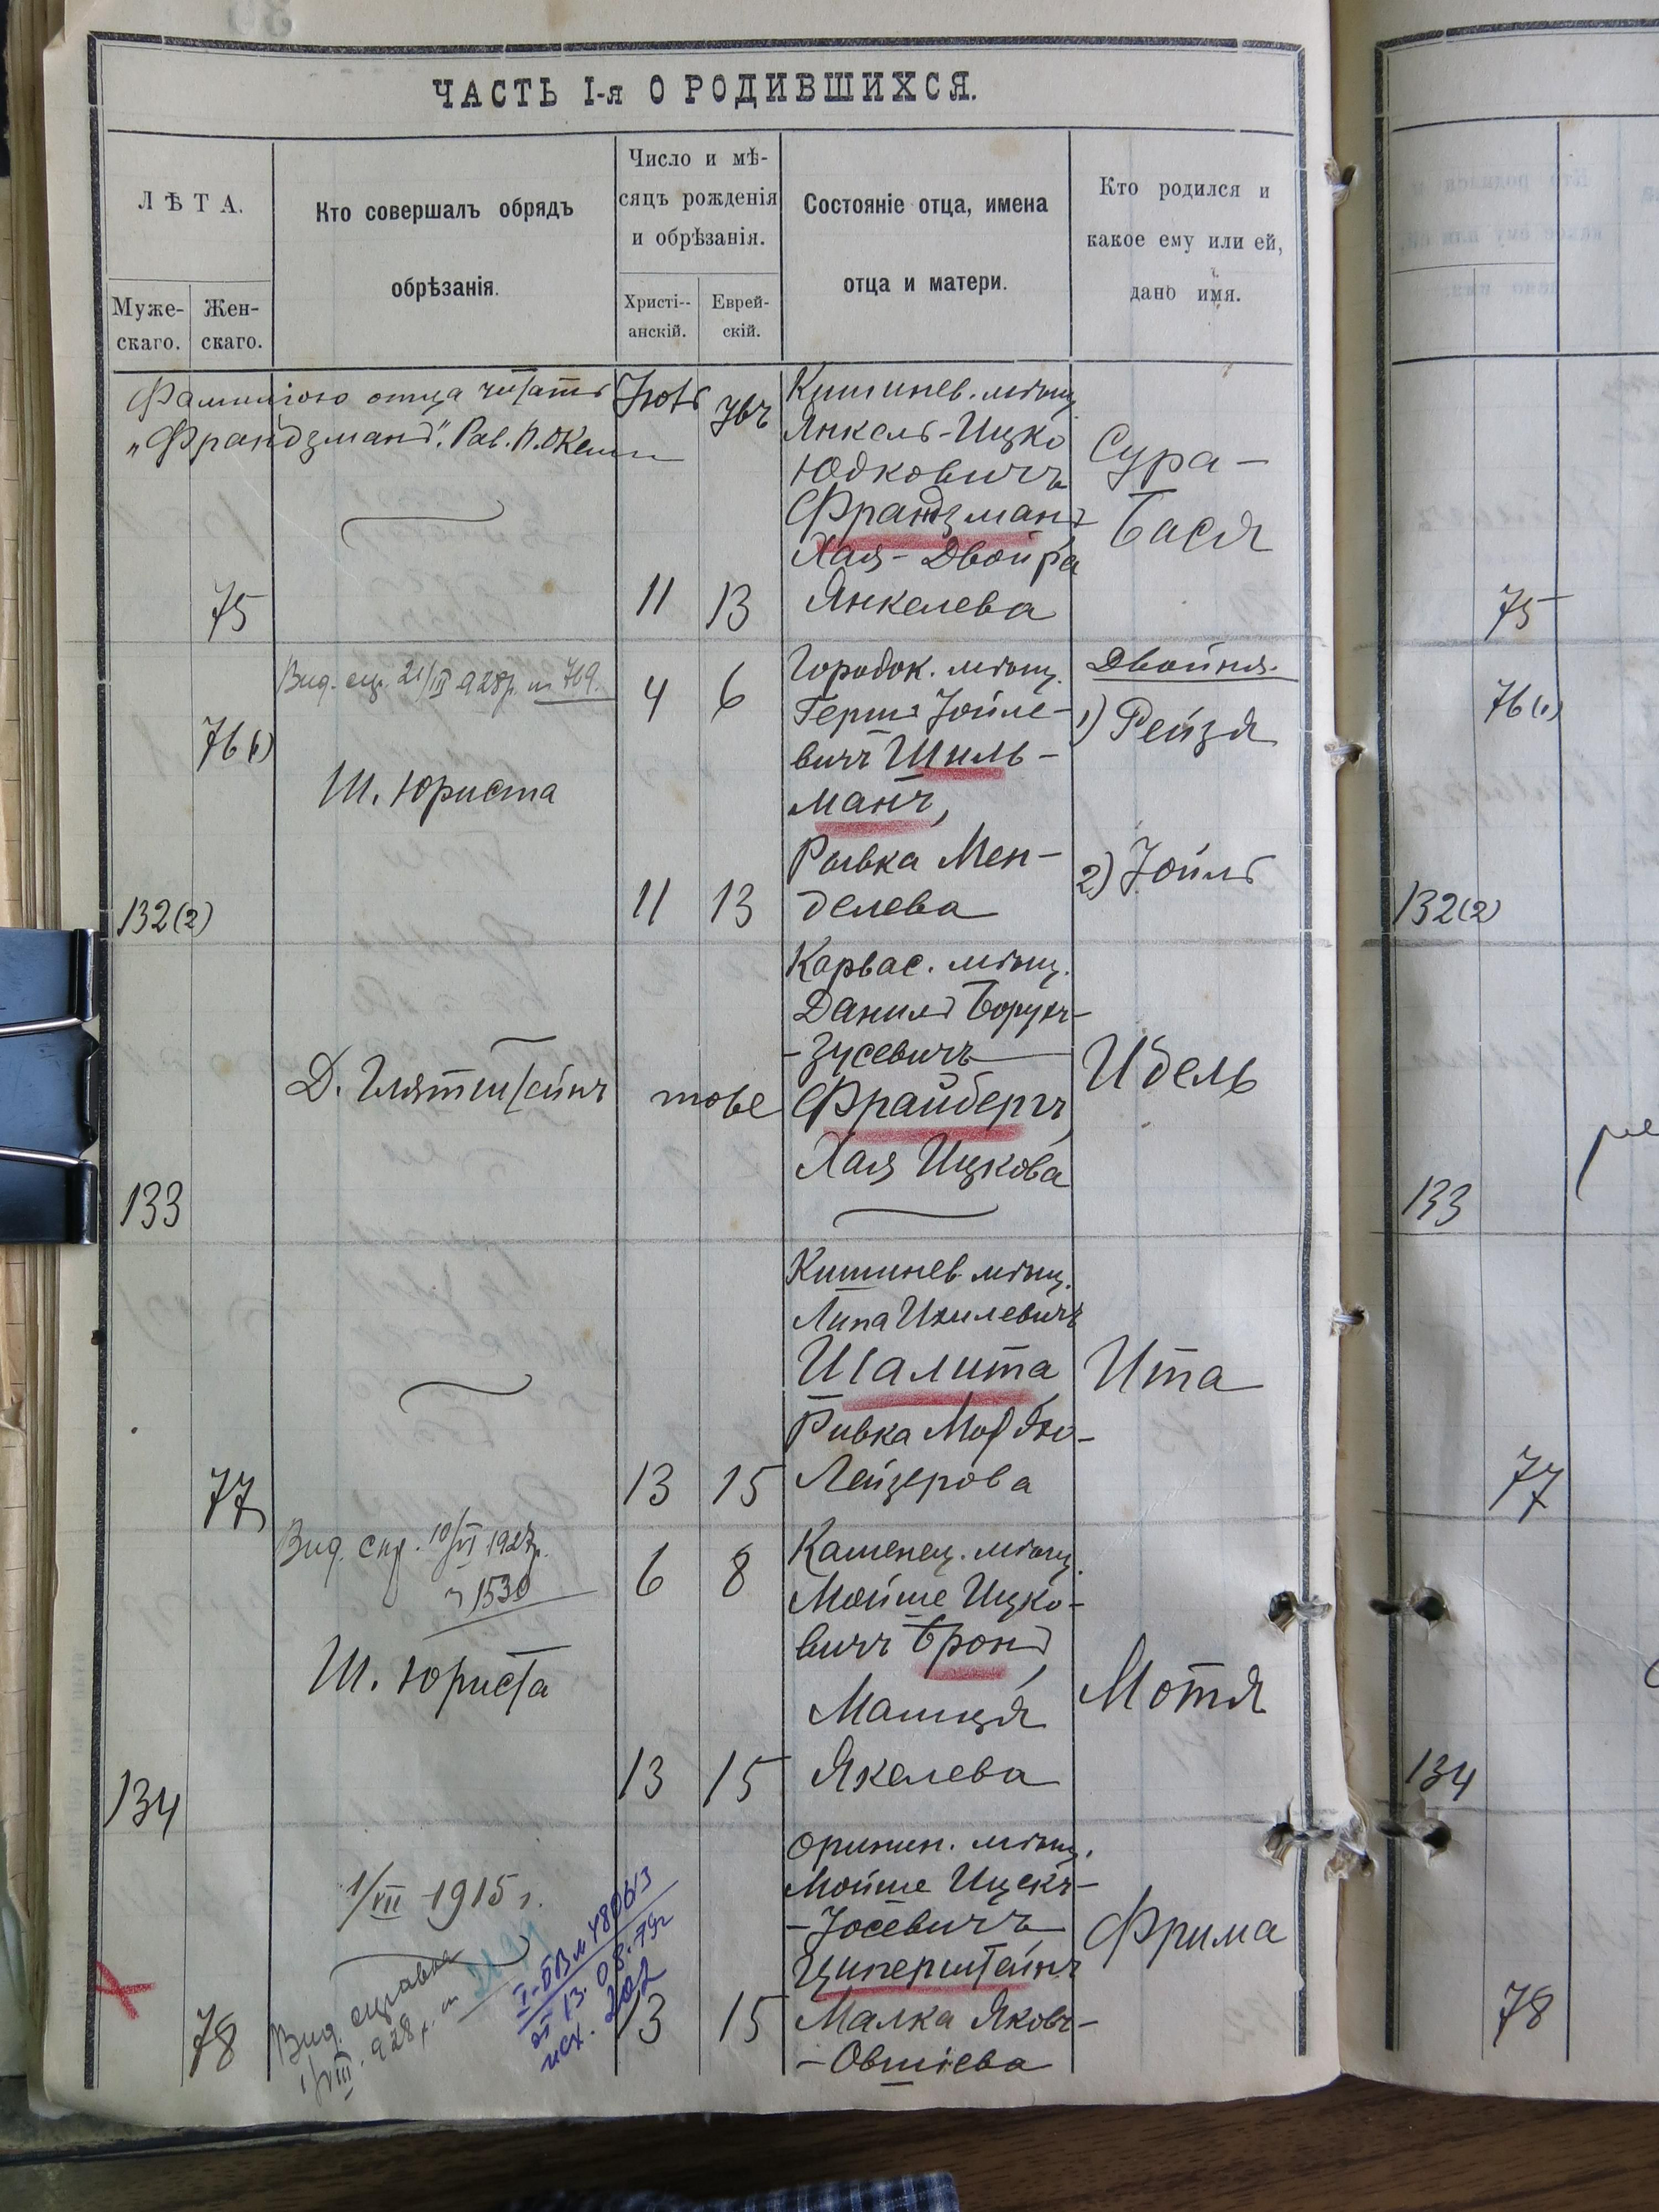 ЧАСТЬ I-я О РОДИВШИХСЯ.
ЛѢТА.
Муже-
скаго.
Жен-
скаго.
Кто совершалъ обрядъ
обрѣзанія.
Число и мѣ-
сяцъ рожденія
и обрѣзанія.
Христі--
анскій.
Еврей-
скій.
Состояніе отца, имена
отца и матери.
Кто родился и
какое ему или ей,
дано имя.
Фамилію отца читать
„Франдзманъ".
75
11
13
Кишинев. мѣщ.
Янкель-Ицко
Юдковичъ
Франдзманъ
Хая-Двойра
Янкелева
Сура-
Бася
76(1)
132(2)
Ш. Юриста
4
6
11
13
Городок. мѣщ.
Герш Іойле-
вичъ Шиль-
манъ,
Рывка Мен-
делева
Двойня.
1) Рейзя
2) Іойль
133
Д. Глятштейнъ
тоже
Карвас. мѣщ.
Данилъ Борух-
-Зусевичъ
Фрайбергъ,
Хая Ицкова
Идель
77
13
15
Кишинев. мѣщ.
Липа Ихилевичъ
Шалита
Ривка Мордко-
Лейзерова
Ита
134
Ш. Юриста
6
8
13
15
Каменец. мѣщ.
Мойше Ицко-
вичъ Бронъ,
Мамця
Якелева
Мотя
78
1/VIII 1915 г.
Вид. справка
от 13.08.79г
исх. 202
13
15
Оринин. мѣщ.
Мойше Ицекъ-
-Іосевичъ
Циперштейнъ
Малка Яковъ-
-Овшіева
Фрима
75
76(1)
132(2)
133
77
134
78